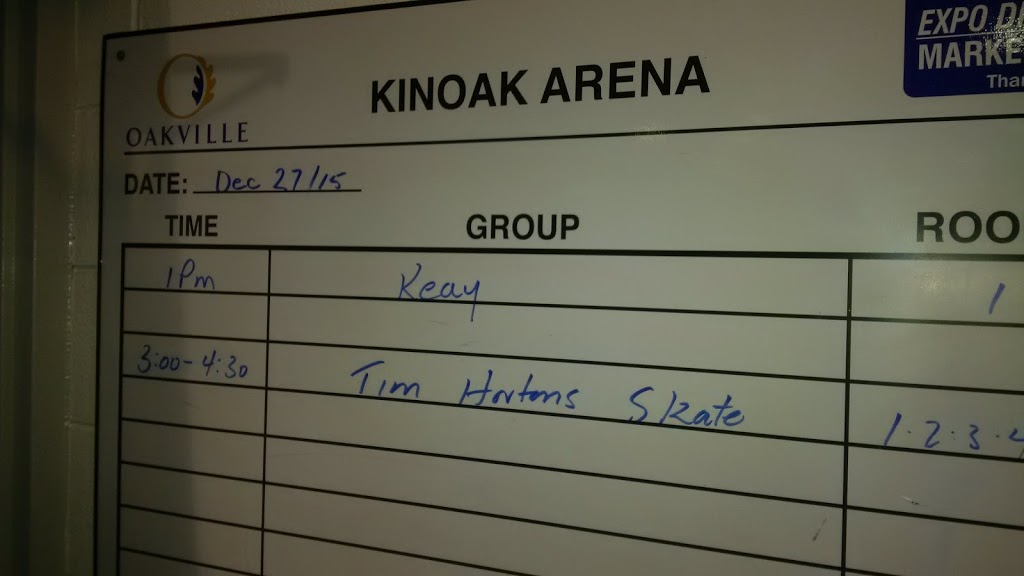 EXPO DI
MARKE
Than
KINOAK ARENA
OAKVILLE
DATE: Dec 27/15
TIME GROUP ROO
1Pm Keay 1
3:00-4:30 Tim Hortons Skate 1.2.3.4